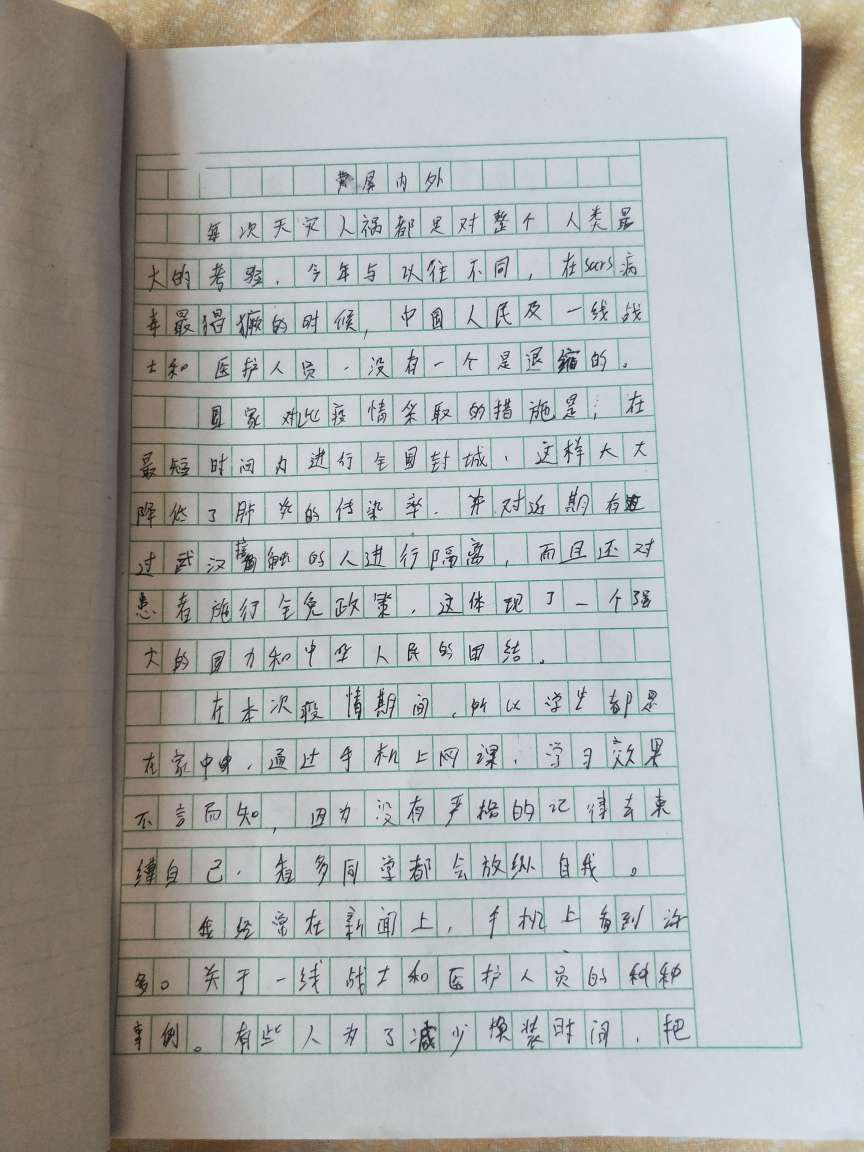 屏内外
每次天灾人祸都是对整个人类最
大的考验，今年与以往不同，在sars病
毒最猖獗的时候，中国人民及一线战
士和医护人员，没有一个是退缩的。
国家对此疫情采取的措施是；在
最短时间内进行全国封城，这样大大
降低了肺炎的传染率，并对近期有
过武汉接触的人进行隔离，而且还对
患者施行全免政策，这体现了一个强
大的国力和中华人民的团结。
在本次疫情期间，所以学生都是
在家中，通过手机上网课，学习效果
不言而知，因为没有严格的记律去束
缚自己，很多同学都会放纵自我。
我经常在新闻上，手机上看到许
多。关于一线战士和医护人员的种种
事例。有些人为了减少换装时间，把